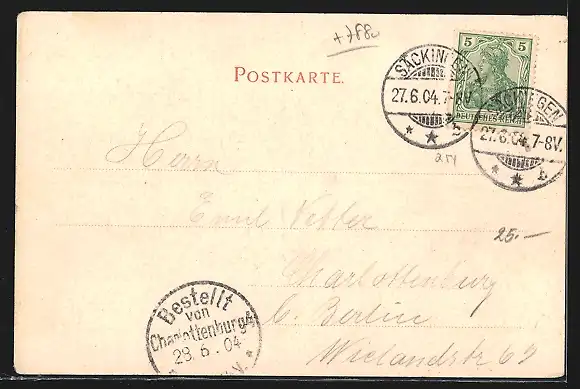 POSTKARTE.
5 5
DEUTSCHES REICH
SÄCKINGEN
27.6.04.7-8V.
* * b
SÄCKINGEN
27.6.04.7-8V.
* * b
Herrn
Emil Vetter
Charlottenburg
b. Berlin
Wielandstr 6
25.-
Bestellt
von
Charlottenburg 4
28.6.04